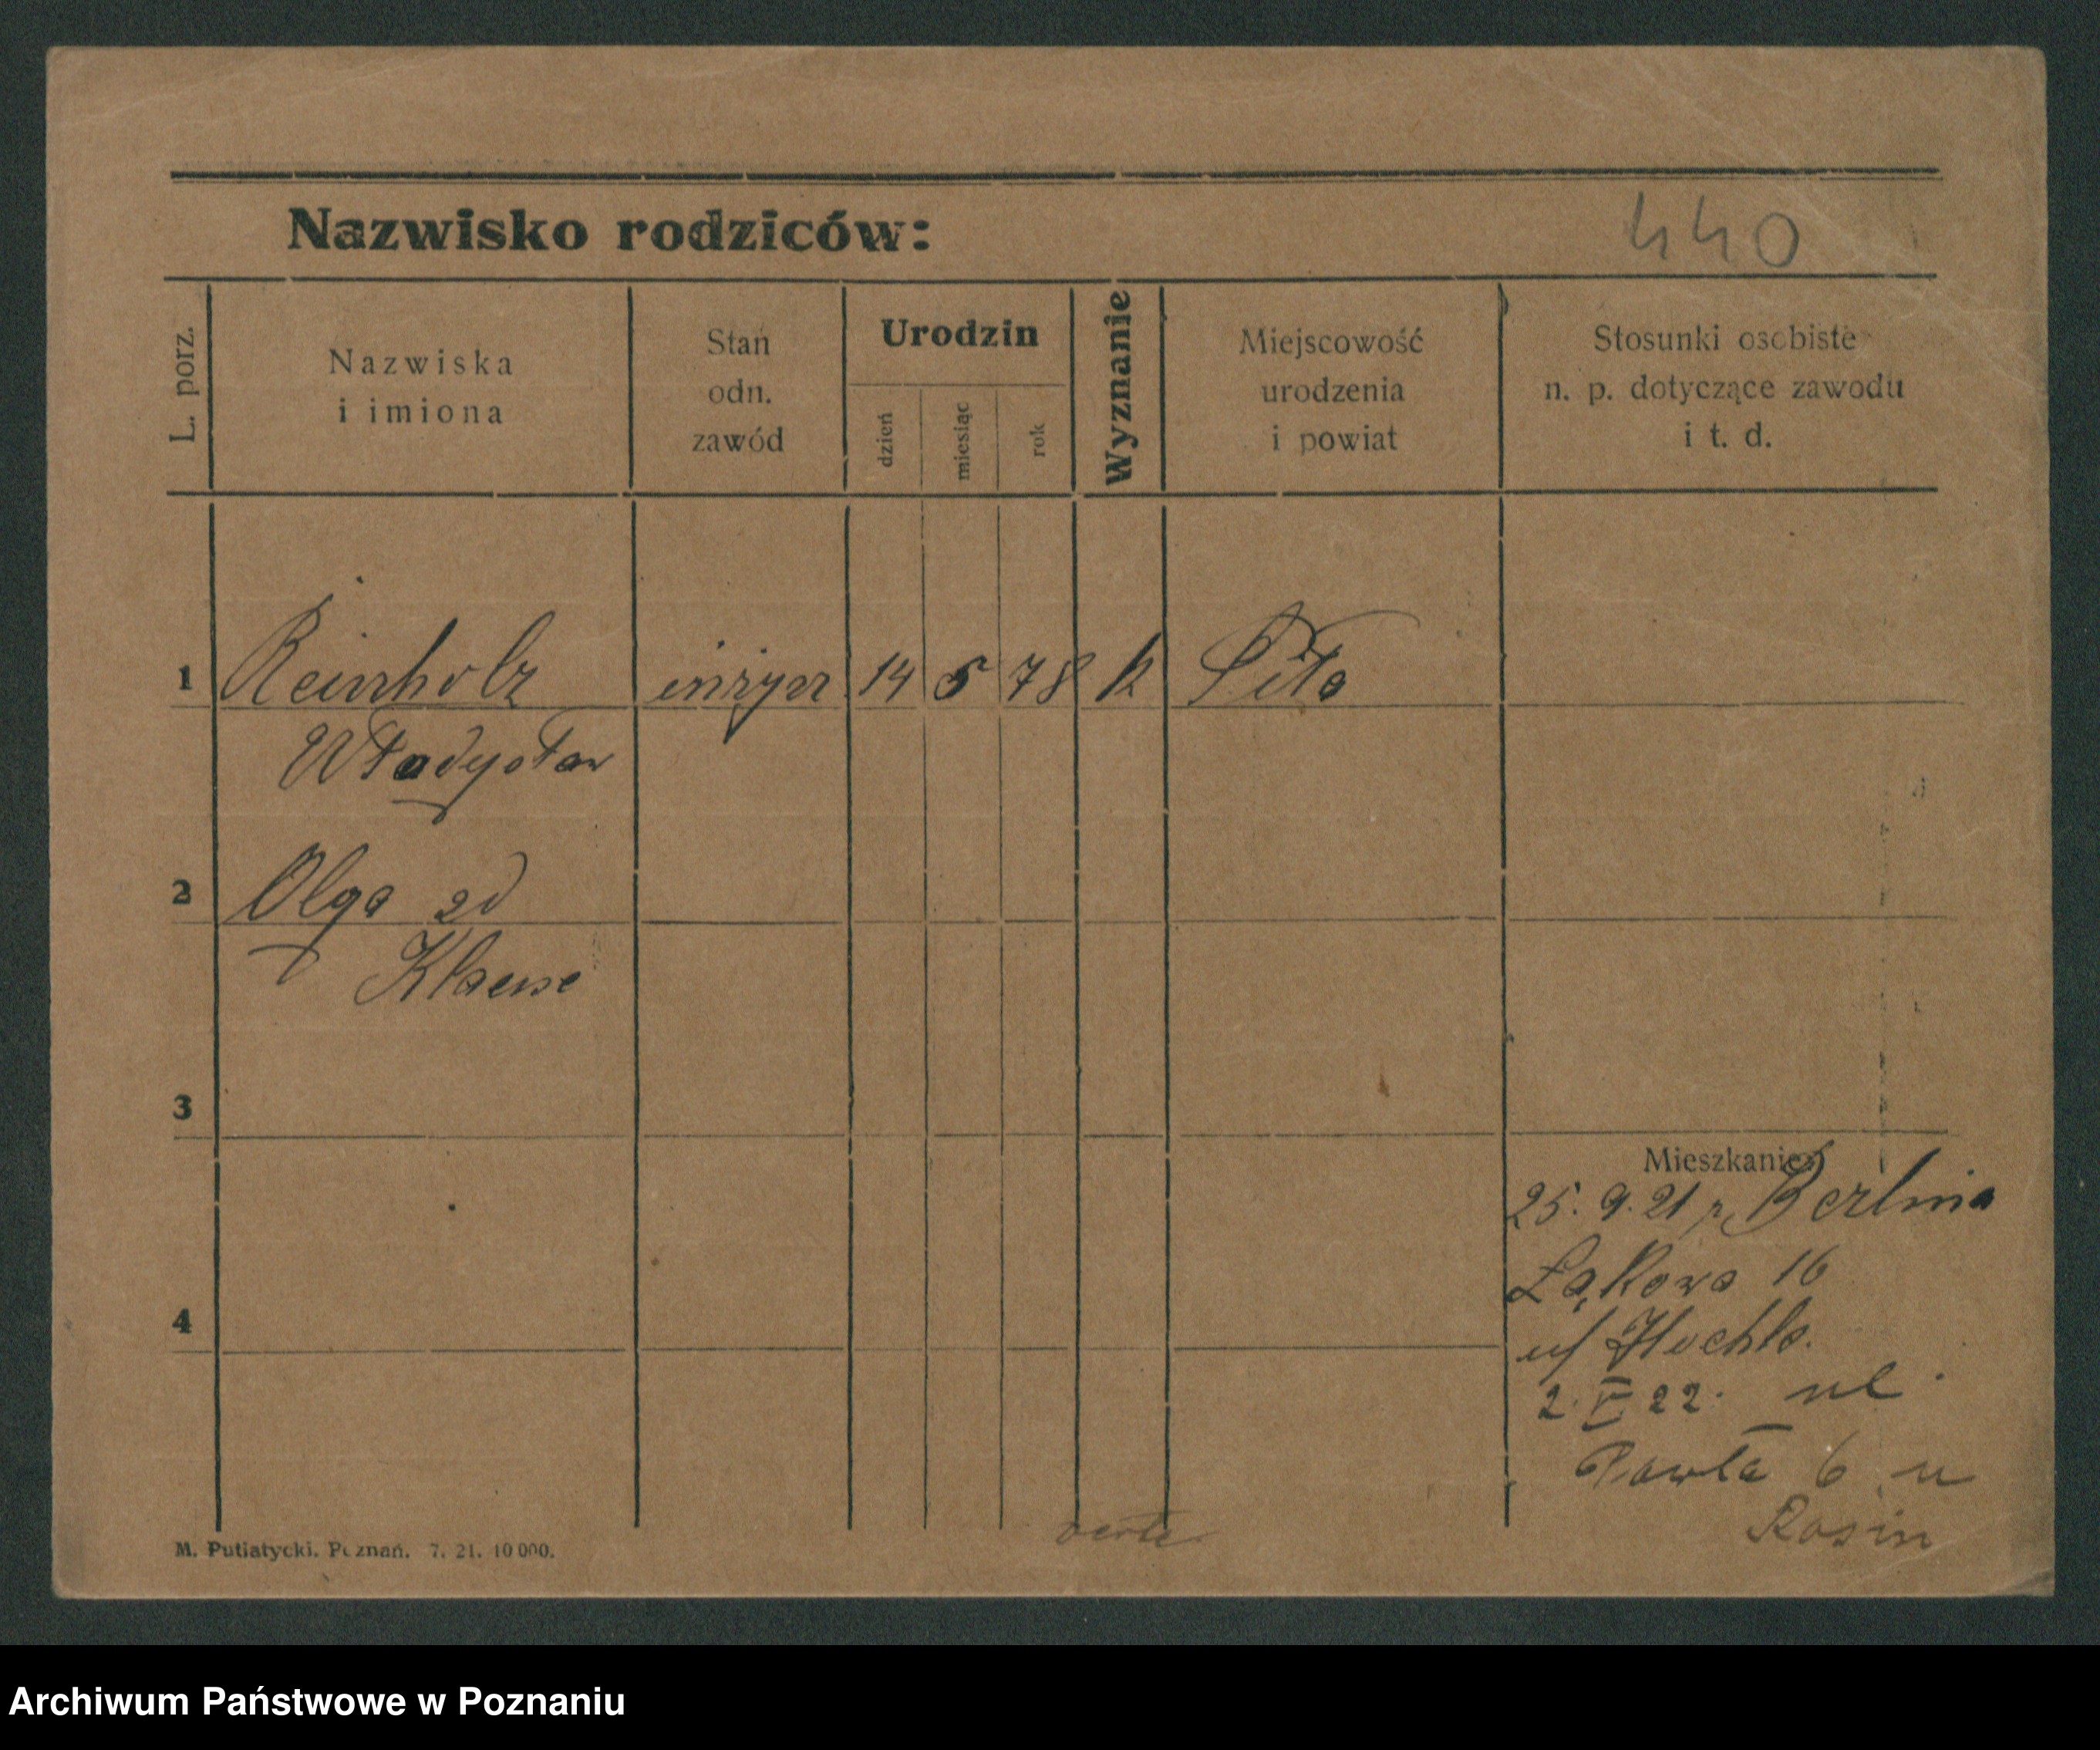 Nazwisko rodziców:
440
L. porz.
Nazwiska
i imiona
Stan
odn.
zawód
Urodzin
dzień
miesiąc
rok
Wyznanie
Miejscowość
urodzenia
i powiat
Stosunki osobiste
n. p. dotyczące zawodu
i t. d.
1 Reinholz inżyn 14 5 78 k Piła
Władysław
2 Olga zd
Klause
3
Mieszkanie:
25. 9. 21 z Berlina
Łąkowa 16
4
2. V 22. ul.
Pawła 6 u
Rosin
verte
M. Putiatycki. Poznań. 7. 21. 10 000.
Archiwum Państwowe w Poznaniu